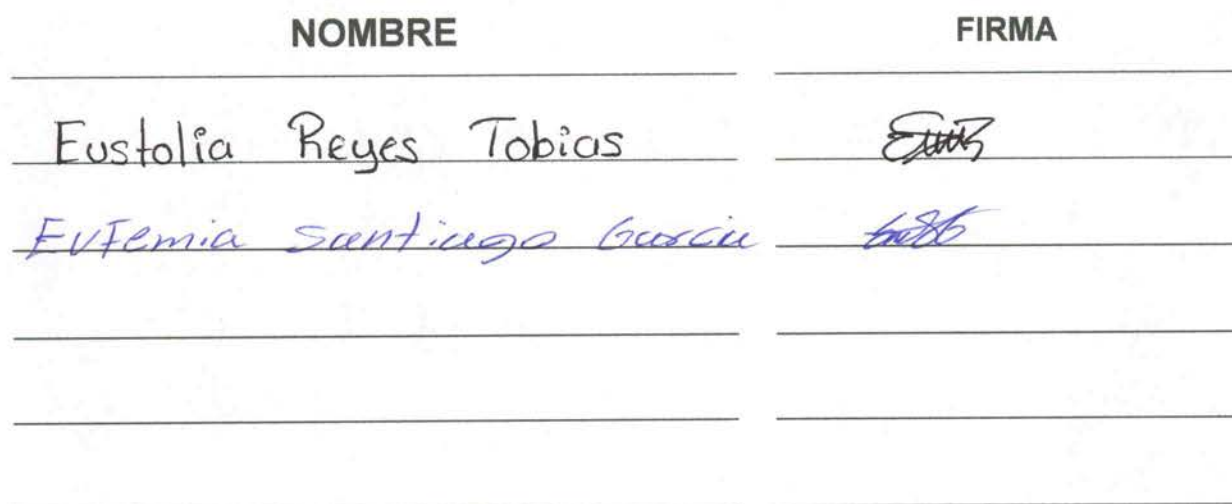 NOMBRE FIRMA
Eustolia Reyes Tobias
Eufemia Santiago Garcia